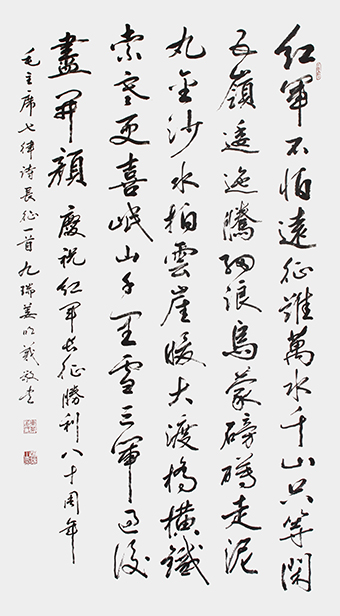 红軍不怕遠征難萬水千山只等閑
五嶺逶迤騰細浪烏蒙磅礴走泥
丸金沙水拍雲崖暖大渡橋橫鐵
索寒更喜岷山千里雪三軍過後
盡開顔 慶祝红軍长征勝利八十周年
毛主席七律詩長征一首 九瑞姜明義敬书